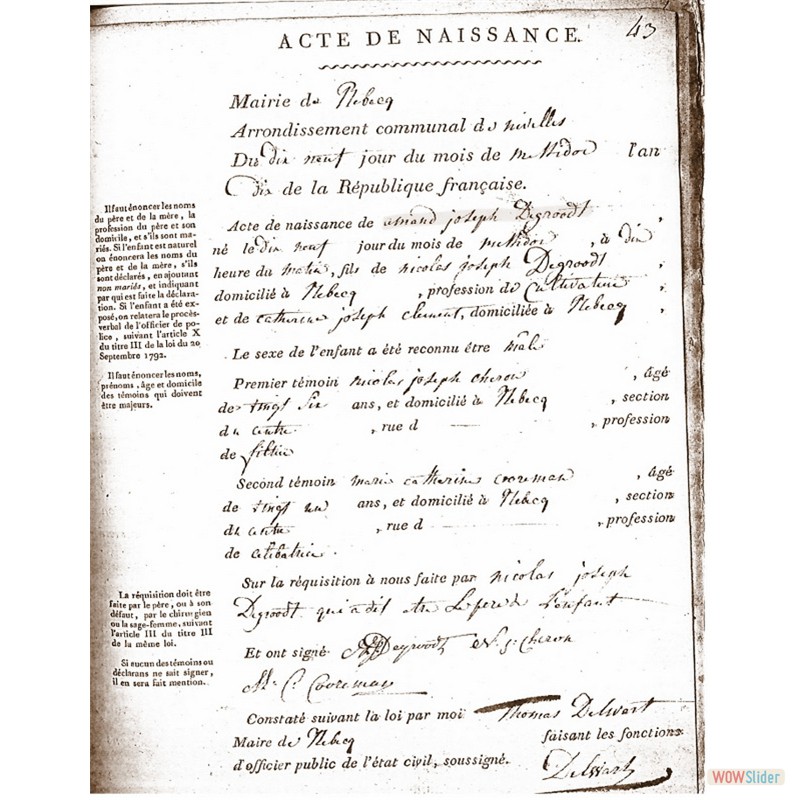 43
ACTE DE NAISSANCE.
Mairie de Rebecq
Arrondissement communal de nivelles
Du dix neuf jour du mois de messidor l'an
Dix de la République française.
Il faut énoncer les noms
du père et de la mère, la
profession du père et son
domicile, et s'ils sont ma-
riés. Si l'enfant est naturel
on énoncera les noms du
père et de la mère, s'ils
sont déclarés, en ajoutant
non mariés, et indiquant
par qui est faite la déclara-
tion. Si l'enfant a été ex-
posé, on relatera le procès-
verbal de l'officier de po-
lice, suivant l'article X
du titre III de la loi du 20
Septembre 1792.
Il faut énoncer les noms,
prénoms, âge et domicile
des témoins qui doivent
être majeurs.
Acte de naissance de amand joseph Degroodt ,
né le dix neuf jour du mois de messidor , à dix
heure du matin, fils de nicolas joseph Degroodt ,
domicilié à Rebecq , profession de Cultivateur ,
et de catherine joseph clement, domiciliée à Rebecq ,
Le sexe de l'enfant a été reconnu être mâle
Premier témoin nicolas joseph cheron , âgé
de vingt six ans, et domicilié à Rebecq , section
du centre , rue d , profession
de
Second témoin marie catherine cooreman , âgé
de vingt un ans, et domicilié à Rebecq , section
du centre , rue d , profession
de célibatrice .
La réquisition doit être
faite par le père, ou à son
défaut, par le chirurgien
ou la sage-femme, suivant
l'article III du titre III
de la même loi.
Si aucun des témoins ou
déclarans ne sait signer,
il en sera fait mention.
Sur la réquisition à nous faite par nicolas joseph
Degroodt qui a dit etre Le pere de L'enfant
Et ont signé Degroodt N. j. Cheron
M. C. Cooreman
Constaté suivant la loi par moi Thomas Delwart
Maire de Rebecq faisant les fonctions
d'officier public de l'état civil, soussigné.
Delwart
WOWSlider